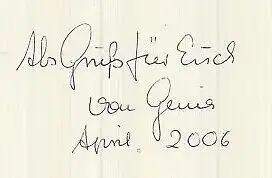 Als Gruß für Euch
von
April. 2006